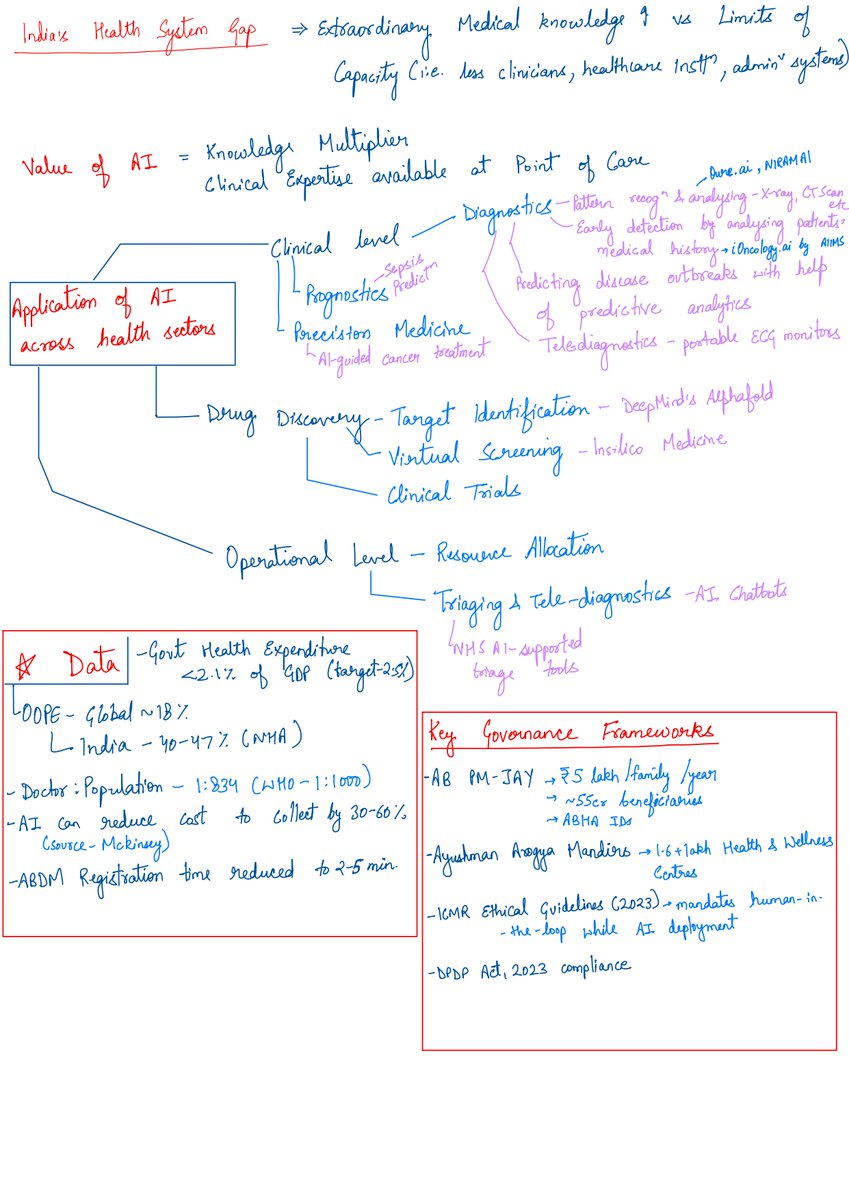 India's Health System Gap ⇒ Extraordinary Medical knowledge ↑ vs Limits of
Capacity (i.e. less clinicians, healthcare Instⁿ, adminᵛ systems)
Value of AI = Knowledge Multiplier
Clinical Expertise available at Point of Care
Qure.ai, NIRAMAI
Application of AI
across health sectors
Clinical level
Diagnostics
Pattern recogⁿ & analysing - X-ray, CT Scan
etc
Early detection by analysing patients'
medical history → iOncology.ai by AIIMS
Predicting disease outbreaks with help
of predictive analytics
Telediagnostics - portable ECG monitors
Prognostics - Sepsis
Predictⁿ
Precision Medicine
AI-guided cancer treatment
Drug Discovery - Target Identification - DeepMind's Alphafold
Virtual Screening - Insilico Medicine
Clinical Trials
Operational Level - Resource Allocation
Triaging & Tele-diagnostics - AI Chatbots
NHS AI-supported
triage tools
☆ Data
- Govt Health Expenditure
<2.1% of GDP (target-2.5%)
OOPE - Global ~18%
India - 40-47% (NHA)
- Doctor : Population - 1:834 (WHO-1:1000)
- AI can reduce cost to collect by 30-60%
(source - Mckinsey)
- ABDM Registration time reduced to 2-5 min.
Key Governance Frameworks
- AB PM-JAY → ₹5 lakh/family/year
→ ~55cr beneficiaries
→ ABHA IDs
- Ayushman Arogya Mandirs → 1.6+ lakh Health & Wellness
Centres
- ICMR Ethical Guidelines (2023) → mandates human-in-
-the-loop while AI deployment
- DPDP Act, 2023 compliance